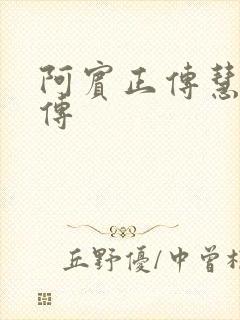 阿賓正傳慧
傳
丘野優/中曾